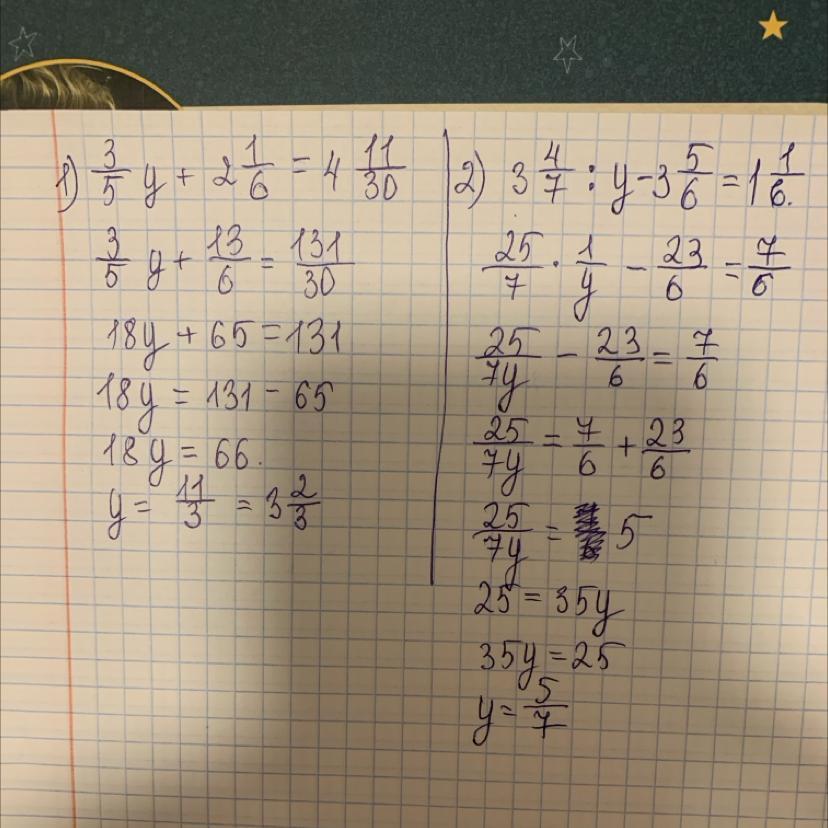 1) 3/5 y + 2 1/6 = 4 11/30
3/5 y + 13/6 = 131/30
18y + 65 = 131
18y = 131 - 65
18y = 66.
y = 11/3 = 3 2/3
2) 3 4/7 : y - 3 5/6 = 1 1/6.
25/7 · 1/y - 23/6 = 7/6
25/7y - 23/6 = 7/6
25/7y = 7/6 + 23/6
25/7y = 5
25 = 35y
35y = 25
y = 5/7